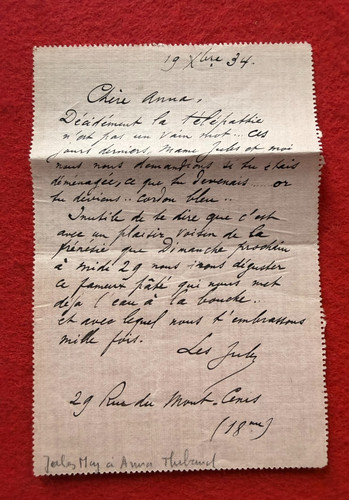 19 Xbre 34.
Chère Anna,
Décidément la télépathie
n'est pas un vain mot... ces
jours derniers, Mame Jules et moi
nous nous demandions si tu étais
déménagée, ce que tu devenais... or
tu deviens.. cordon bleu..
Inutile de te dire que c'est
avec un plaisir voisin de la
frénésie que Dimanche prochain
à midi 29 nous irons déguster
ce fameux pâté qui nous met
déjà l'eau à la bouche..
et avec lequel nous t'embrassons
mille fois.
Les Jules
29 Rue du Mont-Cenis
(18me)
Jules à Anna Thibaud